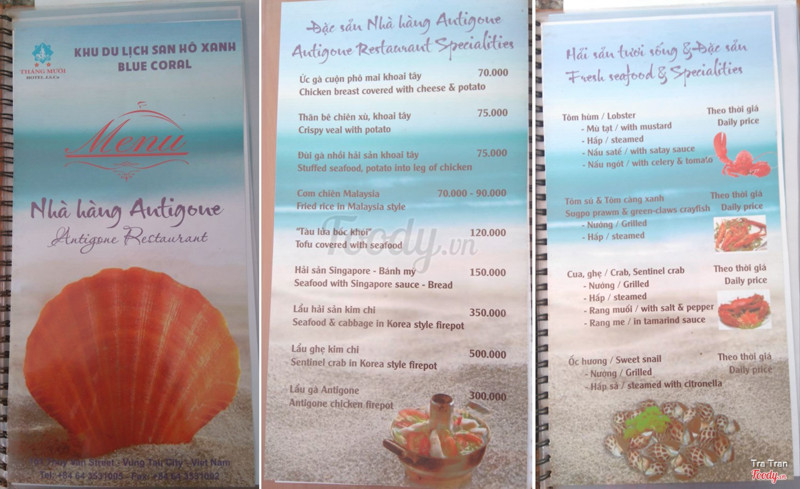 THANG MUOI
KHU DU LỊCH SAN HÔ XANH
BLUE CORAL
Menu
Nhà hàng Antigone
Antigone Restaurant
Street - Vung Tau City - Viet Nam
Tel: +84 64 3531005 - Fax: +84 64 3531002
Đặc sản Nhà hàng Antigone
Antigone Restaurant Specialities
Ức gà cuộn phô mai khoai tây 70.000
Chicken breast covered with cheese & potato
Thăn bê chiên xù, khoai tây 75.000
Crispy veal with potato
Đùi gà nhồi hải sản khoai tây 75.000
Stuffed seafood, potato into leg of chicken
Cơm chiên Malaysia 70.000 - 90.000
Fried rice in Malaysia style
"Tàu lửa bốc khói" 120.000
Tofu covered with seafood
Hải sản Singapore - Bánh mỳ 150.000
Seafood with Singapore sauce - Bread
Lẩu hải sản kim chi 350.000
Seafood & cabbage in Korea style firepot
Lẩu ghẹ kim chi 500.000
Sentinel crab in Korea style firepot
Lẩu gà Antigone 300.000
Antigone chicken firepot
Foody.vn
Hải sản tươi sống & Đặc sản
Fresh seafood & Specialities
Tôm hùm / Lobster Theo thời giá
- Mù tạt / with mustard Daily price
- Hấp / steamed
- Nấu saté / with satay sauce
- Nấu ngót / with celery & tomato
Tôm sú & Tôm càng xanh Theo thời giá
Sugpo prawm & green-claws crayfish Daily price
- Nướng / Grilled
- Hấp / steamed
Cua, ghẹ / Crab, Sentinel crab Theo thời giá
- Nướng / Grilled Daily price
- Hấp / steamed
- Rang muối / with salt & pepper
- Rang me / in tamarind sauce
Ốc hương / Sweet snail Theo thời giá
- Nướng / Grilled Daily price
- Hấp sả / steamed with citronella
Tra Tran
Foody.vn